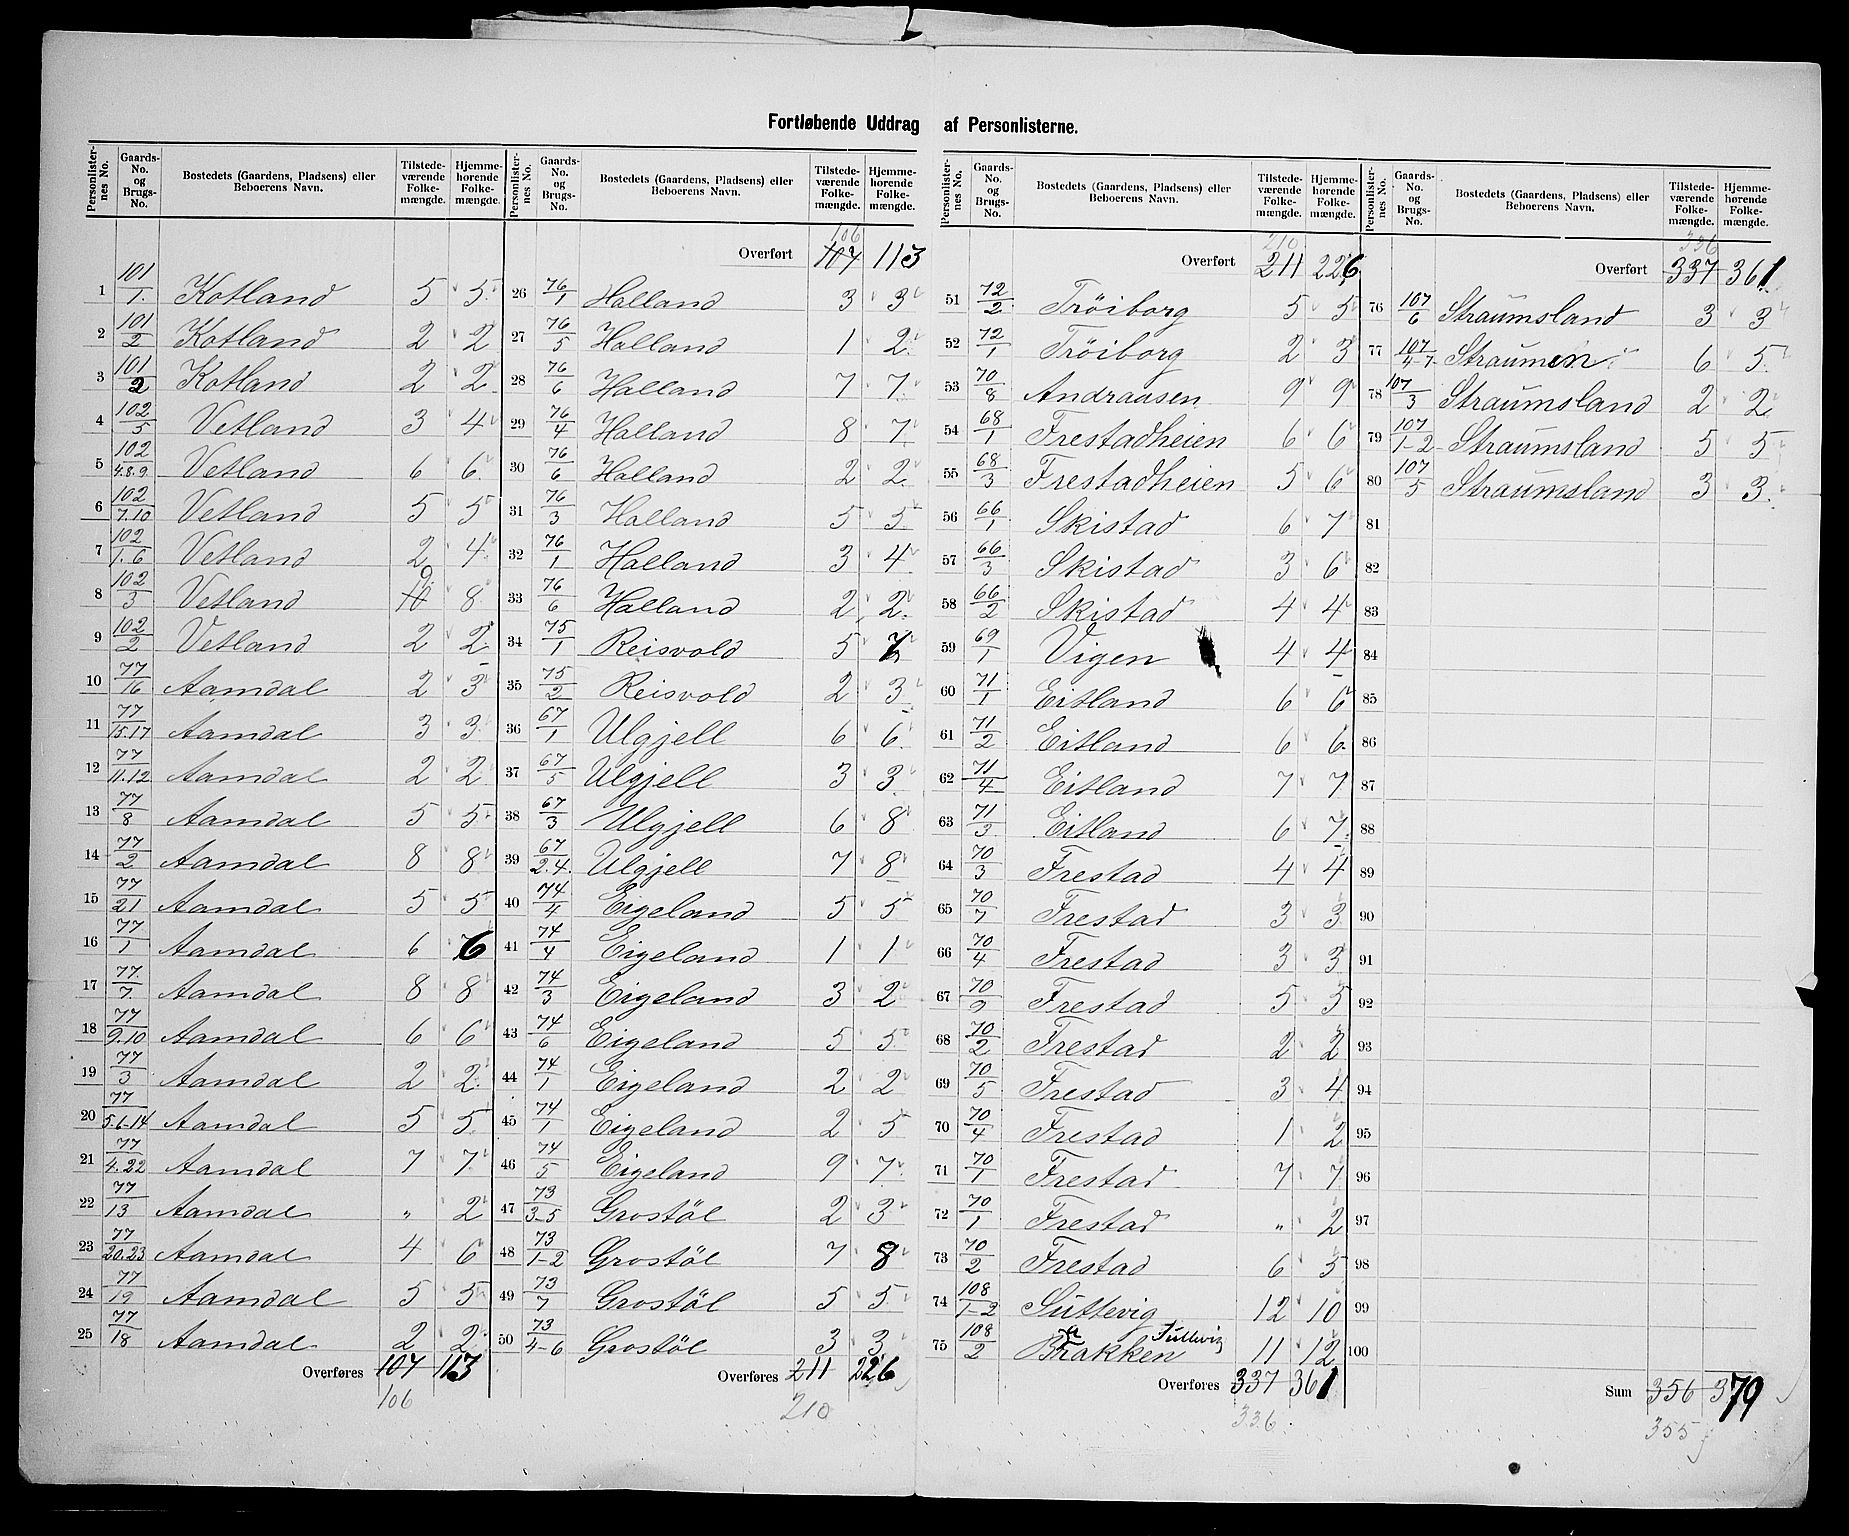 Fortløbende Uddrag af Personlisterne.
Personlister-nes No. | Gaards-No. og Brugs-No. | Bostedets (Gaardens, Pladsens) eller Beboerens Navn. | Tilstede-værende Folke-mængde. | Hjemme-hørende Folke-mængde.
1 101/1. Kotland 5 5
2 101/2 Kotland 2 2
3 101/2 Kotland 2 2
4 102/5 Vetland 3 4
5 102/4.8.9. Vetland 6 6
6 102/7.10 Vetland 5 5
7 102/1.6 Vetland 2 4
8 102/3 Vetland 10 9 8
9 102/2 Vetland 2 2
10 77/16 Aamdal 2 3
11 77/15.17 Aamdal 3 3
12 77/11.12 Aamdal 2 2
13 77/8 Aamdal 5 5
14 77/2 Aamdal 8 8
15 77/21 Aamdal 5 5
16 77/1 Aamdal 6 6
17 77/7. Aamdal 8 8
18 77/9.10 Aamdal 6 6
19 77/3 Aamdal 2 2
20 77/5.6-14 Aamdal 5 5
21 77/4.22 Aamdal 7 7
22 77/13 Aamdal " 2
23 77/20.23 Aamdal 4 6
24 77/19 Aamdal 5 5
25 77/18 Aamdal 2 2
Overføres 107 113
106
Personlister-nes No. | Gaards-No. og Brugs-No. | Bostedets (Gaardens, Pladsens) eller Beboerens Navn. | Tilstede-værende Folke-mængde. | Hjemme-hørende Folke-mængde.
106
Overført 107 113
26 76/1 Halland 3 3
27 76/5 Halland 1 2
28 76/6 Halland 7 7
29 76/4 Halland 8 7
30 76/6 Halland 2 2
31 76/3 Halland 5 5
32 76/1 Halland 3 4
33 76/6 Halland 2 2
34 75/1 Reisvold 5 7
35 75/2 Reisvold 2 3
36 67/1 Ulgjell 6 6
37 67/5 Ulgjell 3 3
38 67/3 Ulgjell 6 8
39 67/2.4 Ulgjell 7 8
40 74/4 Eigeland 5 5
41 74/4 Eigeland 1 1
42 74/3 Eigeland 3 2
43 74/6 Eigeland 5 5
44 74/1 Eigeland 2 2
45 74/1 Eigeland 2 5
46 74/5 Eigeland 9 7
47 73/3-5 Grostöl 2 3
48 73/1-2 Grostöl 7 8
49 73/7 Grostöl 5 5
50 73/4-6 Grostöl 3 3
Overføres 211 226
210
Personlister-nes No. | Gaards-No. og Brugs-No. | Bostedets (Gaardens, Pladsens) eller Beboerens Navn. | Tilstede-værende Folke-mængde. | Hjemme-hørende Folke-mængde.
210
Overført 211 226
51 72/2 Tröiborg 5 5
52 72/1 Tröiborg 2 3
53 70/8 Andraasen 9 9
54 68/1 Frestadheien 6 6
55 68/3 Frestadheien 5 6
56 66/1 Skistad 6 7
57 66/3 Skistad 3 6
58 66/2 Skistad 4 4
59 69/1 Vigen 4 4
60 71/1 Eitland 6 6
61 71/2 Eitland 6 6
62 71/4 Eitland 7 7
63 71/3. Eitland 6 7
64 70/3 Frestad 4 4
65 70/7 Frestad 3 3
66 70/4 Frestad 3 3
67 70/9 Frestad 5 5
68 70/2 Frestad 2 2
69 70/5 Frestad 3 4
70 70/4 Frestad 1 2
71 70/1 Frestad 7 7
72 70/1 Frestad " 2
73 70/2 Frestad 6 5
74 108/1-2 Suttevig 12 10
75 108/2 Brakken 11 12
Overføres 337 361
336
Personlister-nes No. | Gaards-No. og Brugs-No. | Bostedets (Gaardens, Pladsens) eller Beboerens Navn. | Tilstede-værende Folke-mængde. | Hjemme-hørende Folke-mængde.
336
Overført 337 361
76 107/6 Straumsland 3 3
77 107/4-7 Straumen 6 5
78 107/3 Straumsland 2 2
79 107/1-2 Straumsland 5 5
80 107/5 Straumsland 3 3
81
82
83
84
85
86
87
88
89
90
91
92
93
94
95
96
97
98
99
100
Sum 356 379
355